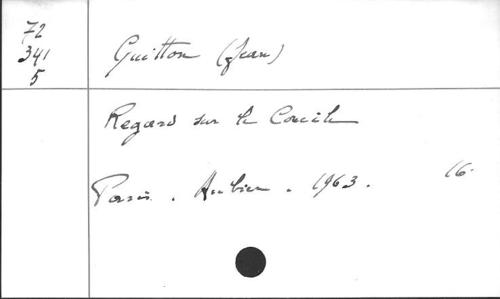 72
341
5
Guitton (Jean)
Regard sur le Concile
Paris. Aubier. 1963. 16.